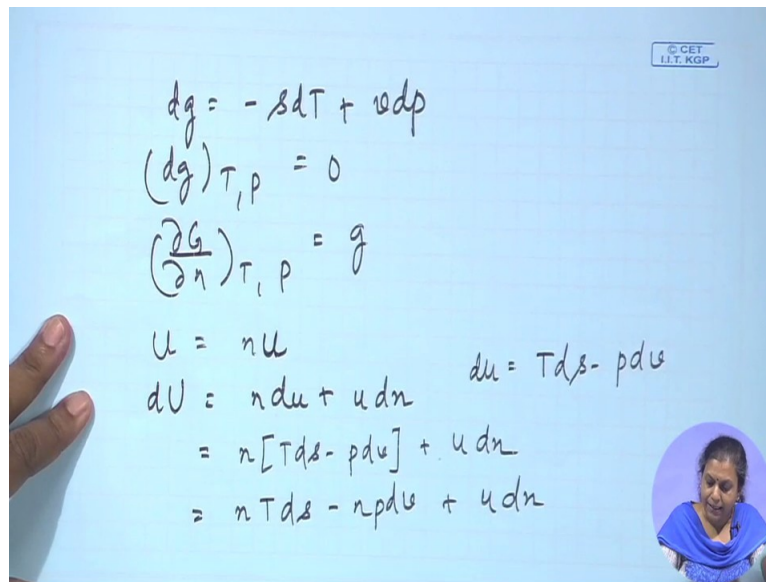 © CET
I.I.T. KGP
dg = - sdT + vdp
(dg)T,P = 0
(∂G/∂n)T,P = g
U = nu
dU = ndu + udn
du = Tds - pdv
= n[Tds - pdv] + udn
= nTds - npdv + udn